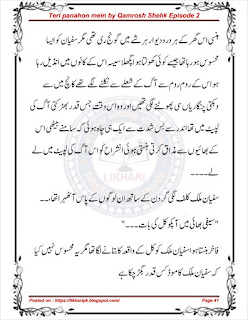 Teri panahon mein by Qamrosh Shehk Episode 2
ہنسی اس گھر کے ہر درو دیوار ہر شے میں گونج رہی تھی مگر سفیان کو ایسا
محسوس ہو رہا تھا جیسے کوئی کھولتا ہوا پگھلا سیسہ اس کے کانوں میں انڈیل رہا
ہو اس کے روم روم سے آگ کے شعلے سے نکلنے لگے تھے کانچ میں سے
دبی چنگاریاں سی پھوٹنے لگی تھیں اور وہ اس وقت جس قدر بھڑکتی آگ کی
لپیٹ میں تھا اندر سے بس شدت سے ایک ہی چاہ ہوئی کہ سامنے بیٹھی اس
کے بھائیوں سے مذاق کرتی ہنستی ہوئی انشراح کو اس آگ کی لپیٹ میں لے
لے۔۔۔۔۔
سفیان ملک کلف لگی گردن کے ساتھ ان لوگوں کے پاس آ ٹھہرا تھا۔۔
"سیفی بھائی میں آپکو کل کی بات۔۔۔"
فاخر ہنستا ہوا سفیان ملک کو کل کے واقعہ کا بتانے لگا تھا مگر یہ محسوس نہیں کیا
کہ سفیان ملک کا موڈ کس قدر بگڑ چکا ہے
LIKHARI
Posted on : https://likharipk.blogspot.com/
Page 41